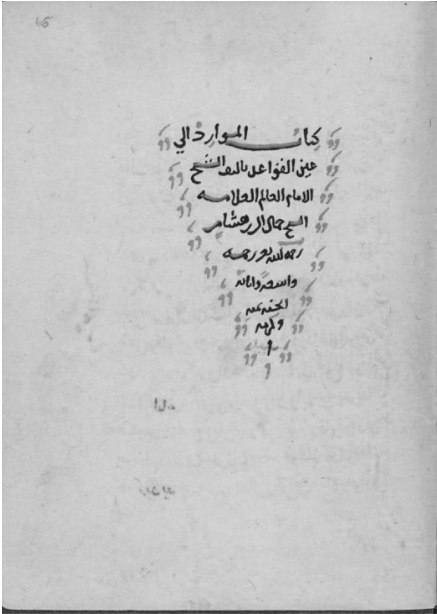 كتاب الموارد الي
عين القواعد تاليف الشيخ
الامام العالم العلامه
الشيخ جمال الدين هشام
رحمه الله
واسعه واثابه
الجنه بمنه
وكرمه